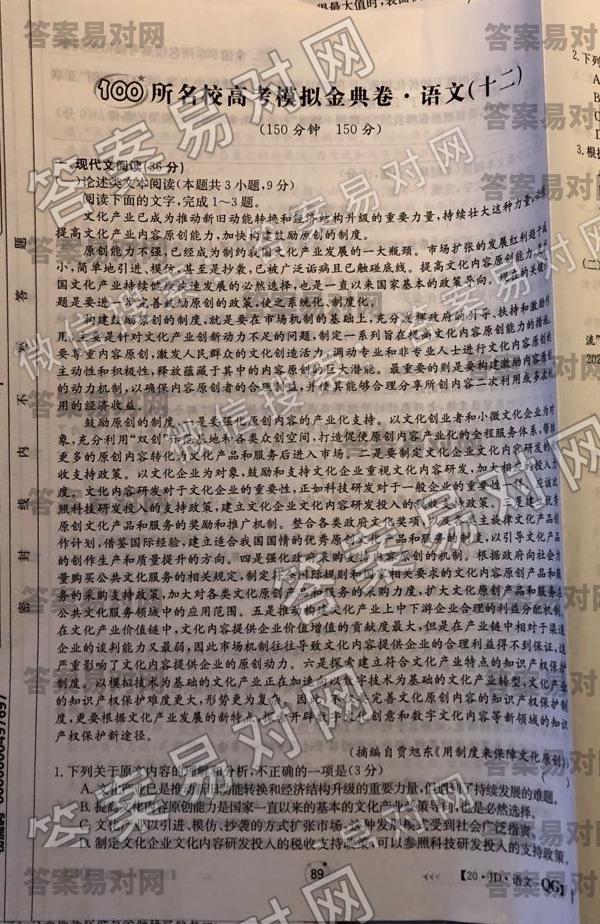 100所名校高考模拟金典卷·语文(十二)
(150分钟 150分)
一、现代文阅读(36分)
论述类文本阅读(本题共3小题,9分)
阅读下面的文字,完成1~3题。
文化产业已成为推动新旧动能转换和经济结构升级的重要力量,持续壮大这种力量,必须
提高文化产业内容原创能力,加快构建鼓励原创的制度。
原创能力不强,已经成为制约我国文化产业发展的一大瓶颈。市场扩张的发展红利趋于减
小,简单地引进、模仿、甚至是抄袭,已被广泛诟病且已触碰底线。提高文化内容原创能力,是我
国文化产业持续健康快速发展的必然选择,也是一直以来国家基本的政策导向。现在的关键问
题是要进一步完善鼓励原创的政策,使之系统化、制度化。
构建鼓励原创的制度,就是要在市场机制的基础上,充分发挥政府的引导、扶持和激励作
用,主要是针对文化产业创新动力不足的问题,制定一系列旨在提高文化内容原创能力的措施。
要尊重内容原创,激发人民群众的文化创造活力,调动专业和非专业人士进行文化内容原创的
主动性和积极性,释放蕴藏于其中的内容原创的巨大潜能。最重要的则是要构建激励内容原创
的动力机制,以确保内容原创者的合理利益,并使其能够合理分享所创内容二次利用或多次利
用的经济收益。
鼓励原创的制度,一是要强化原创内容的产业化支持。以文化创业者和小微文化企业为对
象,充分利用“双创”示范基地和各类众创空间,打造促使原创内容产业化的全程服务体系,帮助
更多的原创内容转化为文化产品和服务后进入市场。二是要制定文化企业文化内容研发的税
收支持政策。以文化企业为对象,鼓励和支持文化企业重视文化内容研发,加大相应的投入力
度。文化内容研发对于文化企业的重要性,正如科技研发对于一般企业的重要性一样,应该比
照科技研发投入的支持政策,建立文化企业文化内容研发投入的税收支持政策。三是建立优秀
原创文化产品和服务的奖励和推广机制。整合各类政府文化奖项,以及主旋律文化产品创
作计划,借鉴国际经验,建立适合我国国情的优秀原创文化产品和服务的制度,以引导文化产品
的创作生产和质量提升的方向。四是强化政府采购支持内容原创的机制。根据政府向社会力
量购买公共文化服务的相关规定,制定符合国际规则和国家相关要求的文化内容原创产品和服
务的采购支持政策,加大对各类文化原创产品和服务的采购力度,扩大文化原创产品和服务在
公共文化服务领域中的应用范围。五是推动构建文化产业上中下游企业合理的利益分配机制。
在文化产业价值链中,文化内容提供企业价值增值的贡献度最大,但是在产业链中相对于渠道
企业的谈判能力又最弱,因此市场机制往往导致文化内容提供企业的合理利益得不到保证,这
严重影响了文化内容提供企业的原创动力。六是探索建立符合文化产业特点的知识产权保护
制度。以模拟技术为基础的文化产业正在加速向以数字技术为基础的文化产业转型,文化产业
的知识产权保护难度更大,形势更为复杂。因此,不仅要完善文化原创内容的知识产权保护制
度,更要根据文化产业发展的新特点,探索开辟数字文化创意和数字文化内容等新领域的知识
产权保护新途径。
(摘编自贾旭东《用制度来保障文化原创》)
1.下列关于原文内容的理解和分析,不正确的一项是(3分)
A.文化产业已是推动新旧动能转换和经济结构升级的重要力量,但遇到了持续发展的难题。
B.提高文化内容原创能力是国家一直以来的基本的文化产业政策导向,也是必然选择。
C.文化产业以引进、模仿、抄袭的方式扩张市场,这种发展模式受到社会广泛指责。
D.制定文化企业文化内容研发投入的税收支持政策,可以参照科技研发投入的支持政策。
89
【20·JD·语文—QG】
密 封 线 内 不 要 答 题
答案易对网
微信搜索:答案易对网